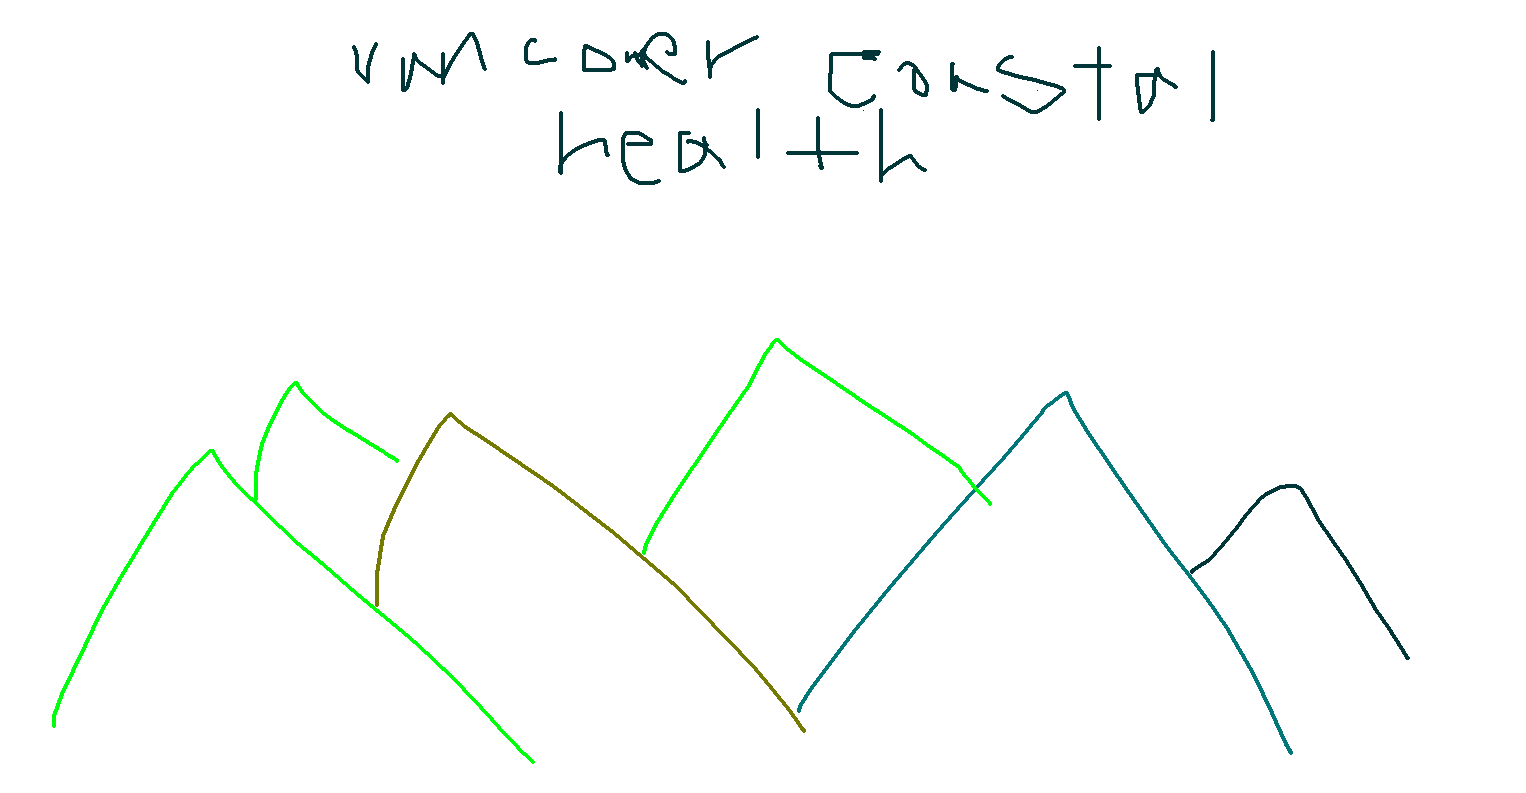 vancover coastal
health